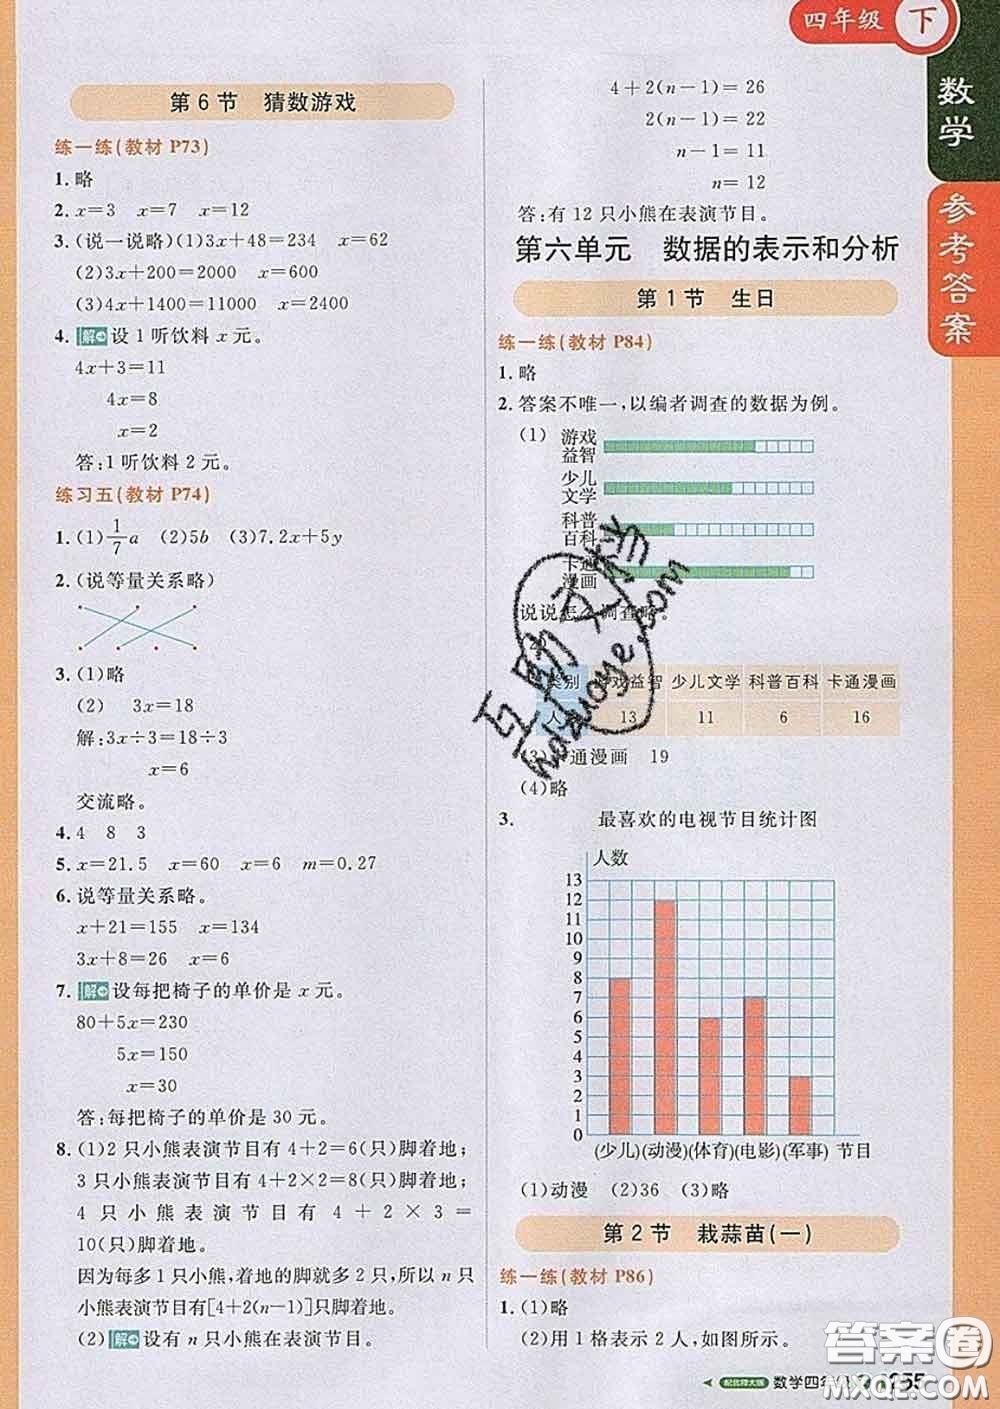 四年级 下
数学
参考答案
第6节 猜数游戏
练一练(教材 P73)
1. 略
2. x=3 x=7 x=12
3. (说一说略)(1)3x+48=234 x=62
(2)3x+200=2000 x=600
(3)4x+1400=11000 x=2400
4. 解 设 1 听饮料 x 元。
4x+3=11
4x=8
x=2
答:1 听饮料 2 元。
练习五(教材 P74)
1. (1)1/7a (2)5b (3)7.2x+5y
2. (说等量关系略)
3. (1)略
(2) 3x=18
解:3x÷3=18÷3
x=6
交流略。
4. 4 8 3
5. x=21.5 x=60 x=6 m=0.27
6. 说等量关系略。
x+21=155 x=134
3x+8=26 x=6
7. 解 设每把椅子的单价是 x 元。
80+5x=230
5x=150
x=30
答:每把椅子的单价是 30 元。
8. (1)2 只小熊表演节目有 4+2=6(只)脚着地;
3 只小熊表演节目有 4+2×2=8(只)脚着地;
4 只小熊表演节目有 4+2×3=
10(只)脚着地。
因为每多 1 只小熊,着地的脚就多 2 只,所以 n 只
小熊表演节目有[4+2(n-1)]只脚着地。
(2) 解 设有 n 只小熊在表演节目。
4+2(n-1)=26
2(n-1)=22
n-1=11
n=12
答:有 12 只小熊在表演节目。
第六单元 数据的表示和分析
第1节 生日
练一练(教材 P84)
1. 略
2. 答案不唯一,以编者调查的数据为例。
(1) 游戏
益智
少儿
文学
科普
百科
卡通
漫画
说说怎么调查略。
类别 游戏益智 少儿文学 科普百科 卡通漫画
人 13 11 6 16
(3)卡通漫画 19
(4)略
3. 最喜欢的电视节目统计图
人数
13
12
11
10
9
8
7
6
5
4
3
2
1
0
(少儿)(动漫)(体育)(电影)(军事) 节目
(1)动漫 (2)36 (3)略
第2节 栽蒜苗(一)
练一练(教材 P86)
1. (1)略
(2)用 1 格表示 2 人,如图所示。
配北师大版 数学四年
互助文档
hdzuoye.com
答案圈
MXQE.COM